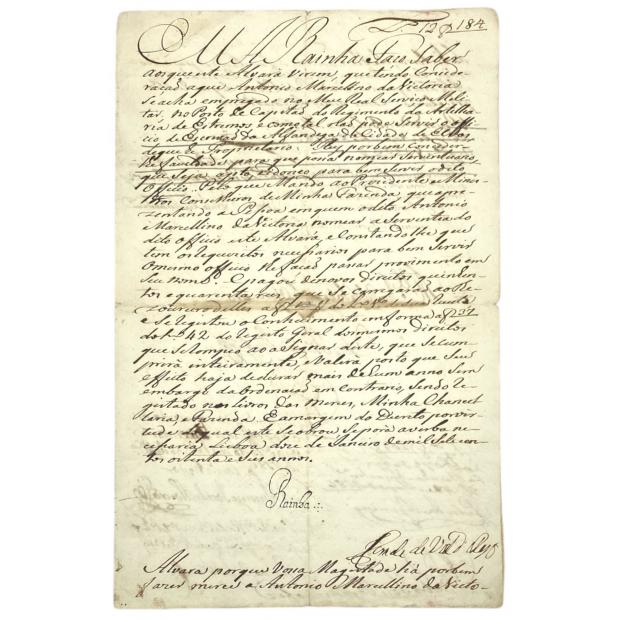 184
A Rainha Faço Saber
aos que este Alvará Virem, que tendo Conside-
ração a que Antonio Marcellino da Victoria
se acha empregado no Meu Real Serviço Mili-
tar, no Posto de Capitaõ do Regimento da Artilhe-
ria de Estremos e como tal naõ pode Servir o offi-
cio de Escrivaõ da Alfandega da Cidade de Elvas
de que he Proprietario: Hey por bem conceder-
lhe faculdade para que possa nomear Serventuario,
que Seja apto, e idoneo para bem Servir o dito
Officio. Pelo que Mando ao Prezidente e Minis-
tros Conselheiros de Minha Fazenda, que apre-
zentando a Pessoa em quem o dito Antonio
Marcellino da Victoria nomear a Serventia do
dito Officio este Alvará, e Constandolhe que
tem os requezitos necessarios para bem Servir
o mesmo officio lhe façaõ passar provimento em
Seu nome. E pagou de novos direitos quinhen-
tos e quarenta reis que Se carregaraõ ao The-
zoureiro delles a
e Se registou o Conhecimento em forma a
do L.º 42 do registo Geral dos mesmos direitos
que Se rompeo ao aSignar deste, que Se cum-
prirá inteiramente, e Valerá posto que Seu
effeito haja de durar mais de hum anno Sem
embargo da ordenaçaõ em Contrario, Sendo re-
gistado nos livros das merces, Minha Chancel-
laria, e Fazenda. E a margem do Decreto por vir-
tude do qual este Se obrou Se porá a verba ne-
cessaria. Lisboa doze de Janeiro de mil Sete cen-
tos oitenta e Seis annos.
Rainha
Conde de Val de Reys
Alvará porque Vossa Magestade há por bem
fazer merce a Antonio Marcellino da Victo-